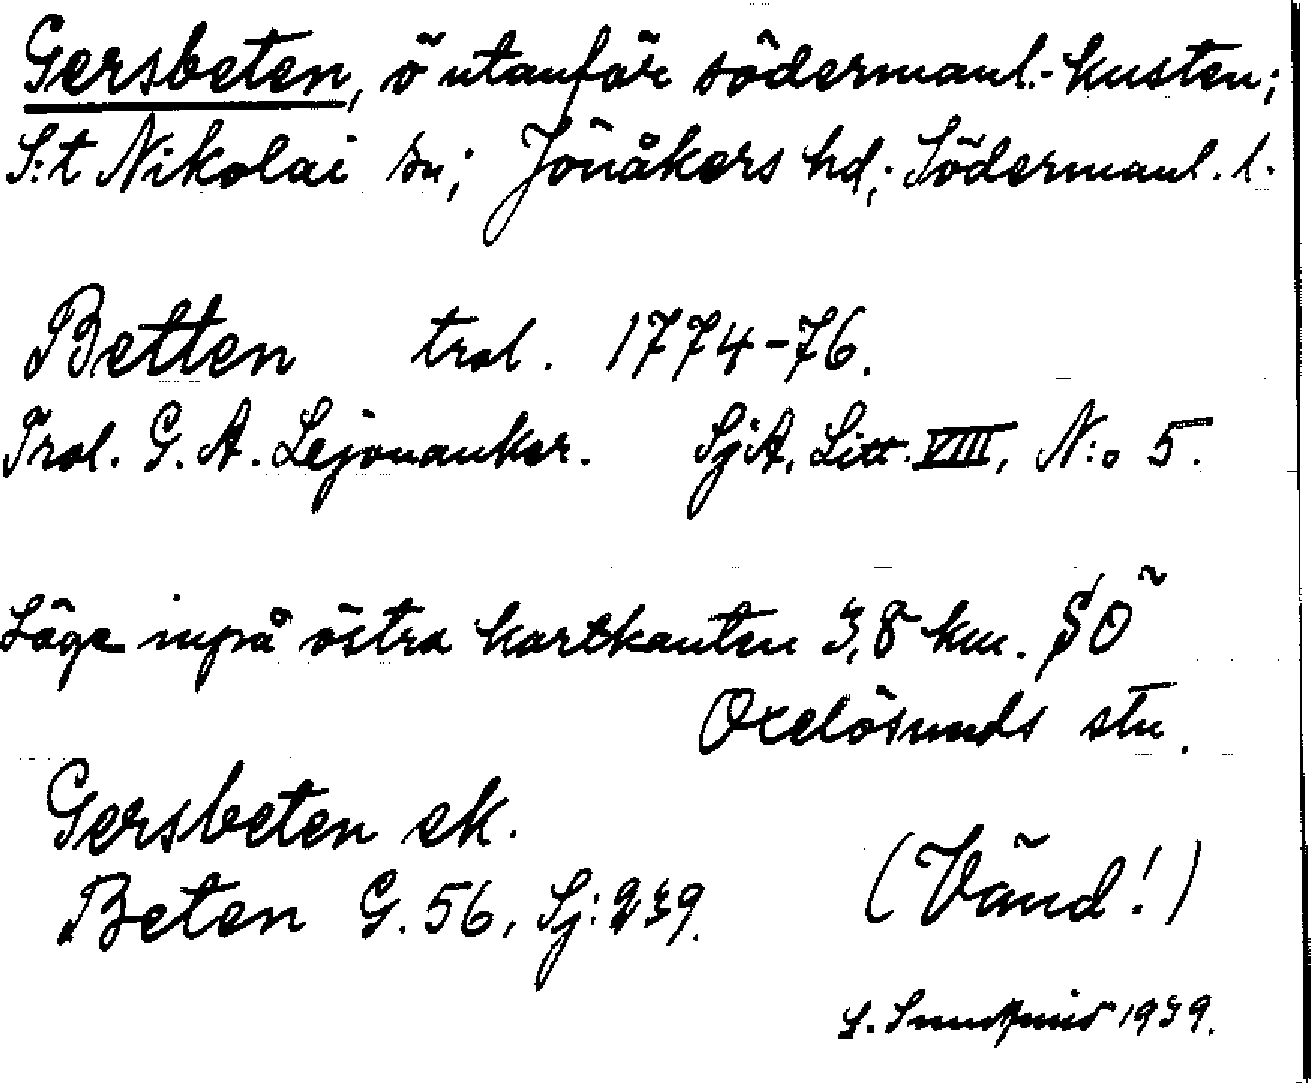 Gersbeten, ö utanför södermanl. kusten;
S:t Nikolai sn; Jönåkers hd; Södermanl. l.
Betten trol. 1774-76.
Trol. G. A. Lejonanker. SjA, Litt. VIII, N:o 5.
Läge inpå östra kartkanten 3,8 km. SO
Oxelösunds stn.
Gersbeten ek.
Beten G. 56, Sj: 239.
(Vänd!)
1939.